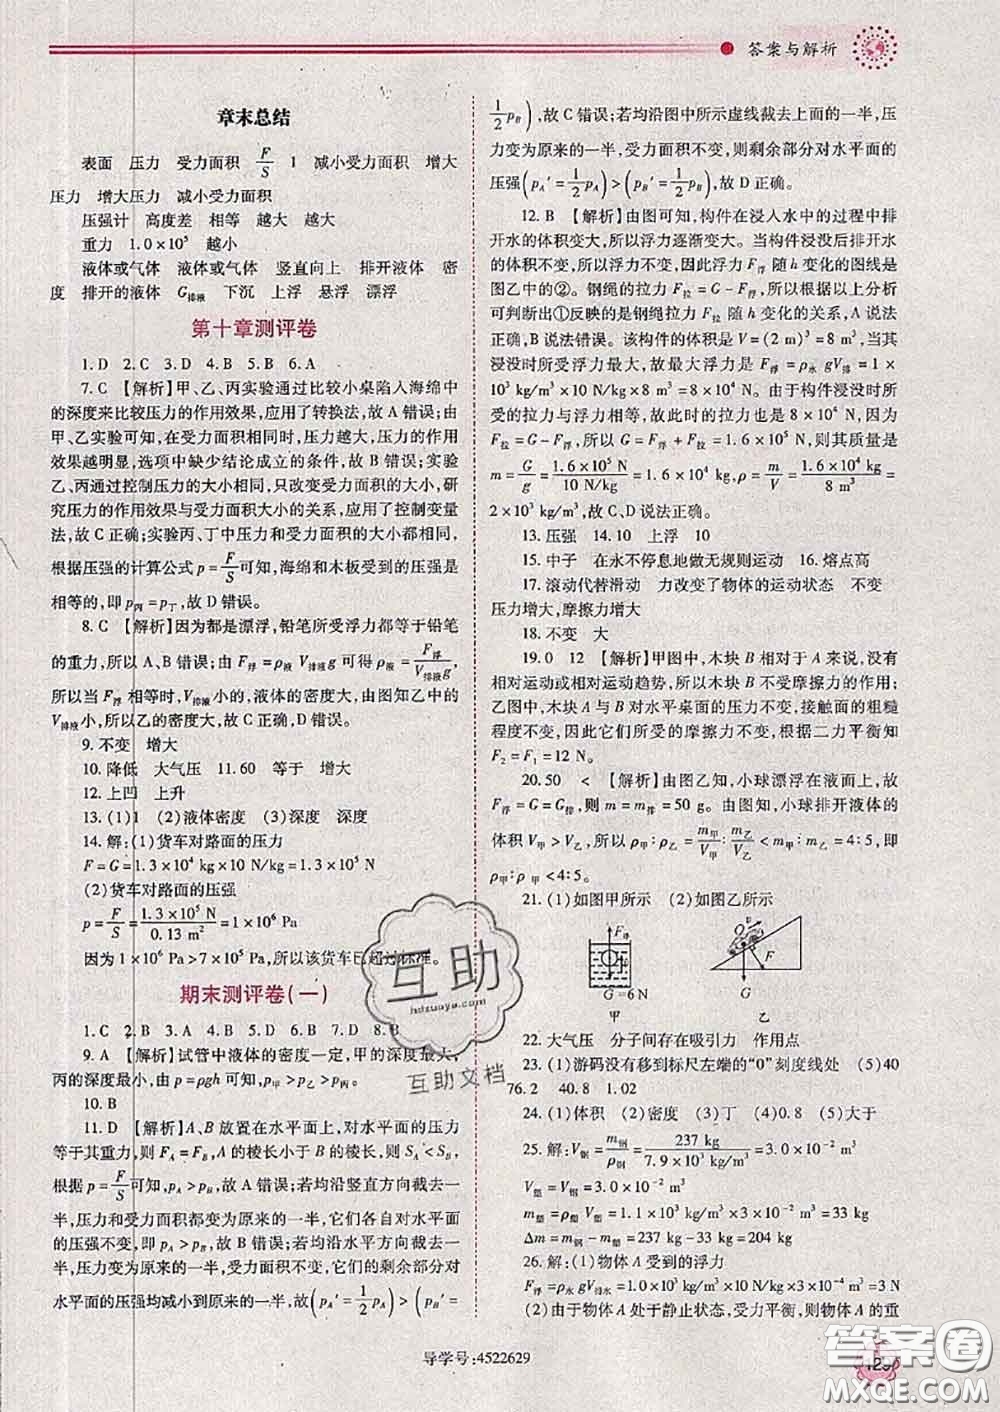 答案与解析
章末总结
表面 压力 受力面积 F/S 1 减小受力面积 增大
压力 增大压力 减小受力面积
压强计 高度差 相等 越大 越大
重力 1.0×10⁵ 越小
液体或气体 液体或气体 竖直向上 排开液体 密
度 排开的液体 G排液 下沉 上浮 悬浮 漂浮
第十章测评卷
1.D 2.C 3.D 4.B 5.B 6.A
7.C 【解析】甲、乙、丙实验通过比较小桌陷入海绵中
的深度来比较压力的作用效果,应用了转换法,故A错误;由
甲、乙实验可知,在受力面积相同时,压力越大,压力的作用
效果越明显,选项中缺少结论成立的条件,故B错误;实验
乙、丙通过控制压力的大小相同,只改变受力面积的大小,研
究压力的作用效果与受力面积大小的关系,应用了控制变量
法,故C正确;实验丙、丁中压力和受力面积的大小都相同,
根据压强的计算公式p=F/S可知,海绵和木板受到的压强是
相等的,即p丙=p丁,故D错误。
8.C 【解析】因为都是漂浮,铅笔所受浮力都等于铅笔
的重力,所以A、B错误;由F浮=ρ液V排液g可得ρ液=F浮/V排液g,
所以当F浮相等时,V排液小的,液体的密度大,由图知乙中的
V排液小,所以乙的密度大,故C正确,D错误。
9.不变 增大
10.降低 大气压 11.60 等于 增大
12.上凹 上升
13.(1)1 (2)液体密度 (3)深度 深度
14.解:(1)货车对路面的压力
F=G=1.3×10⁴ kg×10 N/kg=1.3×10⁵ N
(2)货车对路面的压强
p=F/S=1.3×10⁵ N/0.13 m²=1×10⁶ Pa
因为1×10⁶ Pa>7×10⁵ Pa,所以该货车已超过标准。
期末测评卷(一)
1.C 2.B 3.A 4.C 5.D 6.B 7.D 8.B
9.A 【解析】试管中液体的密度一定,甲的深度最大,
丙的深度最小,由p=ρgh可知,p甲>p乙>p丙。
10.B
11.D 【解析】A、B放置在水平面上,对水平面的压力
等于其重力,则FA=FB,A的棱长小于B的棱长,则SA<SB,
根据p=F/S可知,pA>pB,故A错误;若均沿竖直方向截去一
半,压力和受力面积都变为原来的一半,它们各自对水平面
的压强不变,即pA>pB,故B错误;若均沿水平方向截去一
半,压力变为原来的一半,受力面积不变,它们的剩余部分对
水平面的压强均减小到原来的一半,故(pA′=1/2pA)>(pB′=
1/2pB),故C错误;若均沿图中所示虚线截去上面的一半,压
力变为原来的一半,受力面积不变,则剩余部分对水平面的
压强(pA′=1/2pA)>(pB′=1/2pB),故D正确。
12.B 【解析】由图可知,构件在浸入水中的过程中排
开水的体积变大,所以浮力逐渐变大。当构件浸没后排开水
的体积不变,所以浮力不变,因此浮力F浮随h变化的图线是
图乙中的②。钢绳的拉力F拉=G-F浮,所以根据以上分析
可判断出①反映的是钢绳拉力F拉随h变化的关系,A说法
正确,B说法错误。该构件的体积V=(2 m)³=8 m³,当其
浸没时所受浮力最大,故最大浮力是F浮=ρ水gV排=1×
10³ kg/m³×10 N/kg×8 m³=8×10⁴ N。由于构件浸没时所
受的拉力与浮力相等,故此时的拉力也是8×10⁴ N,因为
F拉=G-F浮,所以G=F浮+F拉=1.6×10⁵ N,则其质量是
m=G/g=1.6×10⁵ N/10 N/kg=1.6×10⁴ kg,故密度ρ=m/V=1.6×10⁴ kg/8 m³=
2×10³ kg/m³,故C、D说法正确。
13.压强 14.10 上浮 10
15.中子 在永不停息地做无规则运动 16.熔点高
17.滚动代替滑动 力改变了物体的运动状态 不变
压力增大,摩擦力增大
18.不变 大
19.0 12 【解析】甲图中,木块B相对于A来说,没有
相对运动或相对运动趋势,所以木块B不受摩擦力的作用;
乙图中,木块A与B对水平桌面的压力不变,接触面的粗糙
程度不变,因此它们所受的摩擦力不变,根据二力平衡知
F₂=F₁=12 N。
20.50 < 【解析】由图乙知,小球漂浮在液面上,故
F浮=G=G排,则m=m排=50 g。由图知,小球排开液体的
体积V甲>V乙,所以ρ甲∶ρ乙=m甲/V甲∶m乙/V乙<m甲∶m乙=4∶5,即
ρ甲∶ρ乙<4∶5。
21.(1)如图甲所示 (2)如图乙所示
F浮
G=6 N
甲
v
O
F
G
乙
22.大气压 分子间存在吸引力 作用点
23.(1)游码没有移到标尺左端的“0”刻度线处 (5)40
76.2 40.8 1.02
24.(1)体积 (2)密度 (3)丁 (4)0.8 (5)大于
25.解:V钢=m钢/ρ钢=237 kg/7.9×10³ kg/m³=3.0×10⁻² m³
V塑=V钢=3.0×10⁻² m³
m塑=ρ塑V塑=1.1×10³ kg/m³×3×10⁻² m³=33 kg
Δm=m钢-m塑=237 kg-33 kg=204 kg
26.解:(1)物体A受到的浮力
F浮=ρ水gV排水=1.0×10³ kg/m³×10 N/kg×3×10⁻⁴ m³=3 N
(2)由于物体A处于静止状态,受力平衡,则物体A的重
互助
hdzuoye.com
互助文档
导学号:4522629
129
答案圈
MXQE.COM